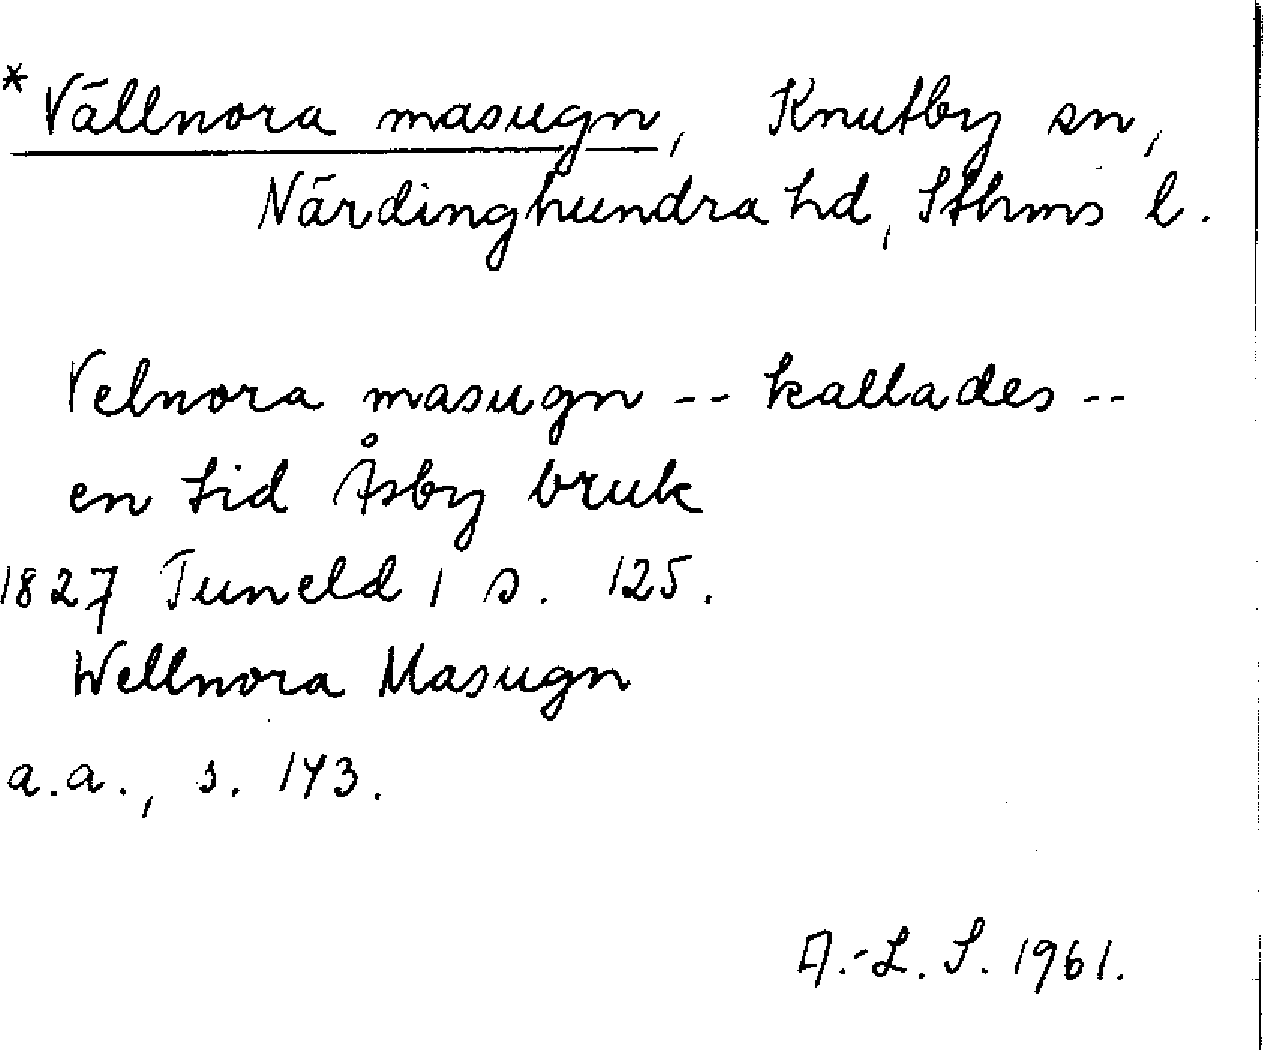 * Vällnora masugn, Knutby sn,
Närdinghundra hd, Sthms l.
Velnora masugn -- kallades --
en tid Åsby bruk
1827 Tuneld 1 s. 125.
Wellnora Masugn
a.a., s. 143.
A.-L. S. 1961.